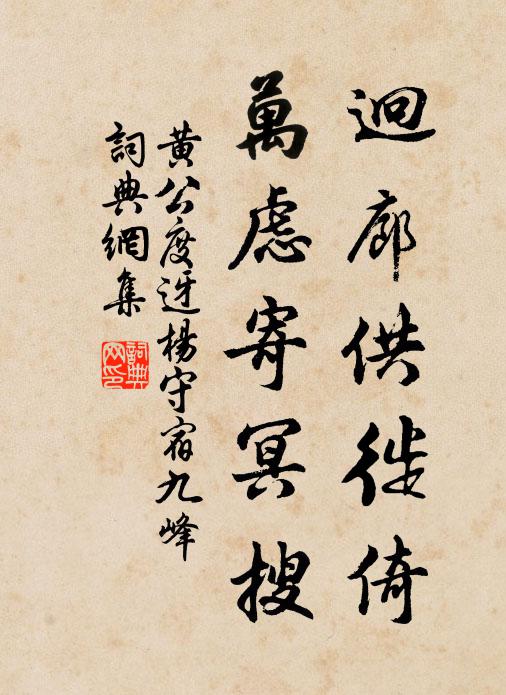 迴廊供徙倚
萬慮寄冥搜
黃公度迓楊守宿九峰
詞典網集
詞典網印